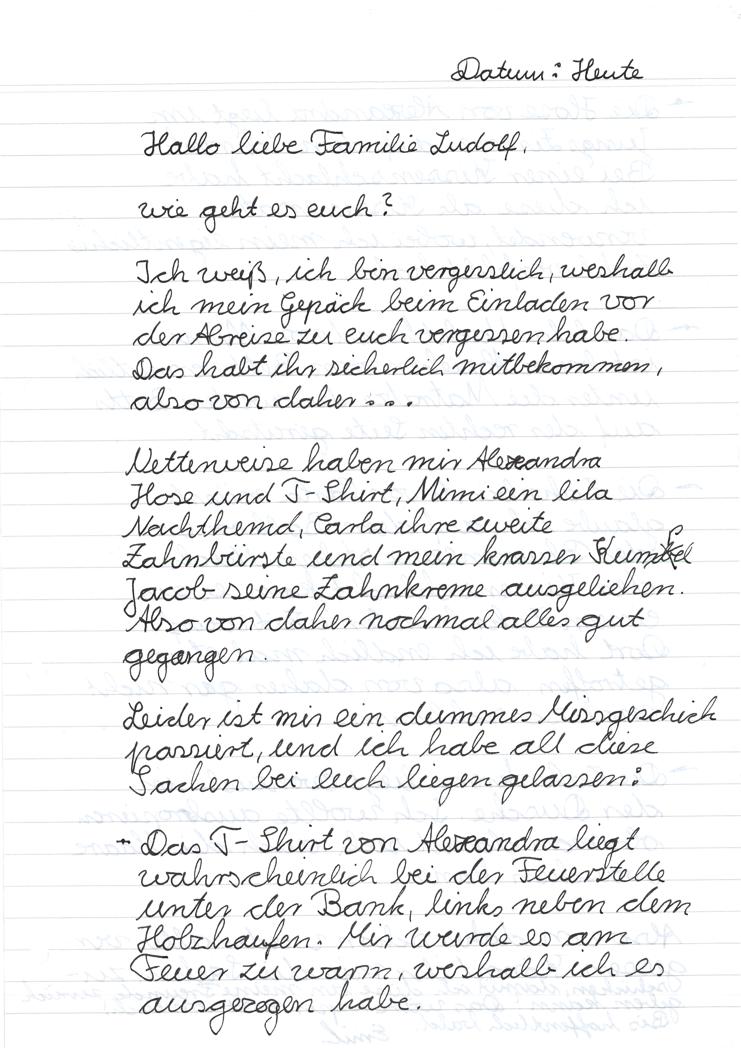 Datum: Heute
Hallo liebe Familie Ludolf,
wie geht es euch?
Ich weiß, ich bin vergesslich, weshalb
ich mein Gepäck beim Einladen vor
der Abreise zu euch vergessen habe.
Das habt ihr sicherlich mitbekommen,
also von daher...
Netterweise haben mir Alexandra
Hose und T-Shirt, Mimi ein lila
Nachthemd, Carla ihre zweite
Zahnbürste und mein krasser Kumpel
Jacob seine Zahnkreme ausgeliehen.
Also von daher nochmal alles gut
gegangen.
Leider ist mir ein dummes Missgeschick
passiert, und ich habe all diese
Sachen bei euch liegen gelassen:
- Das T-Shirt von Alexandra liegt
wahrscheinlich bei der Feuerstelle
unter der Bank, links neben dem
Holzhaufen. Mir wurde es am
Feuer zu warm, weshalb ich es
ausgezogen habe.